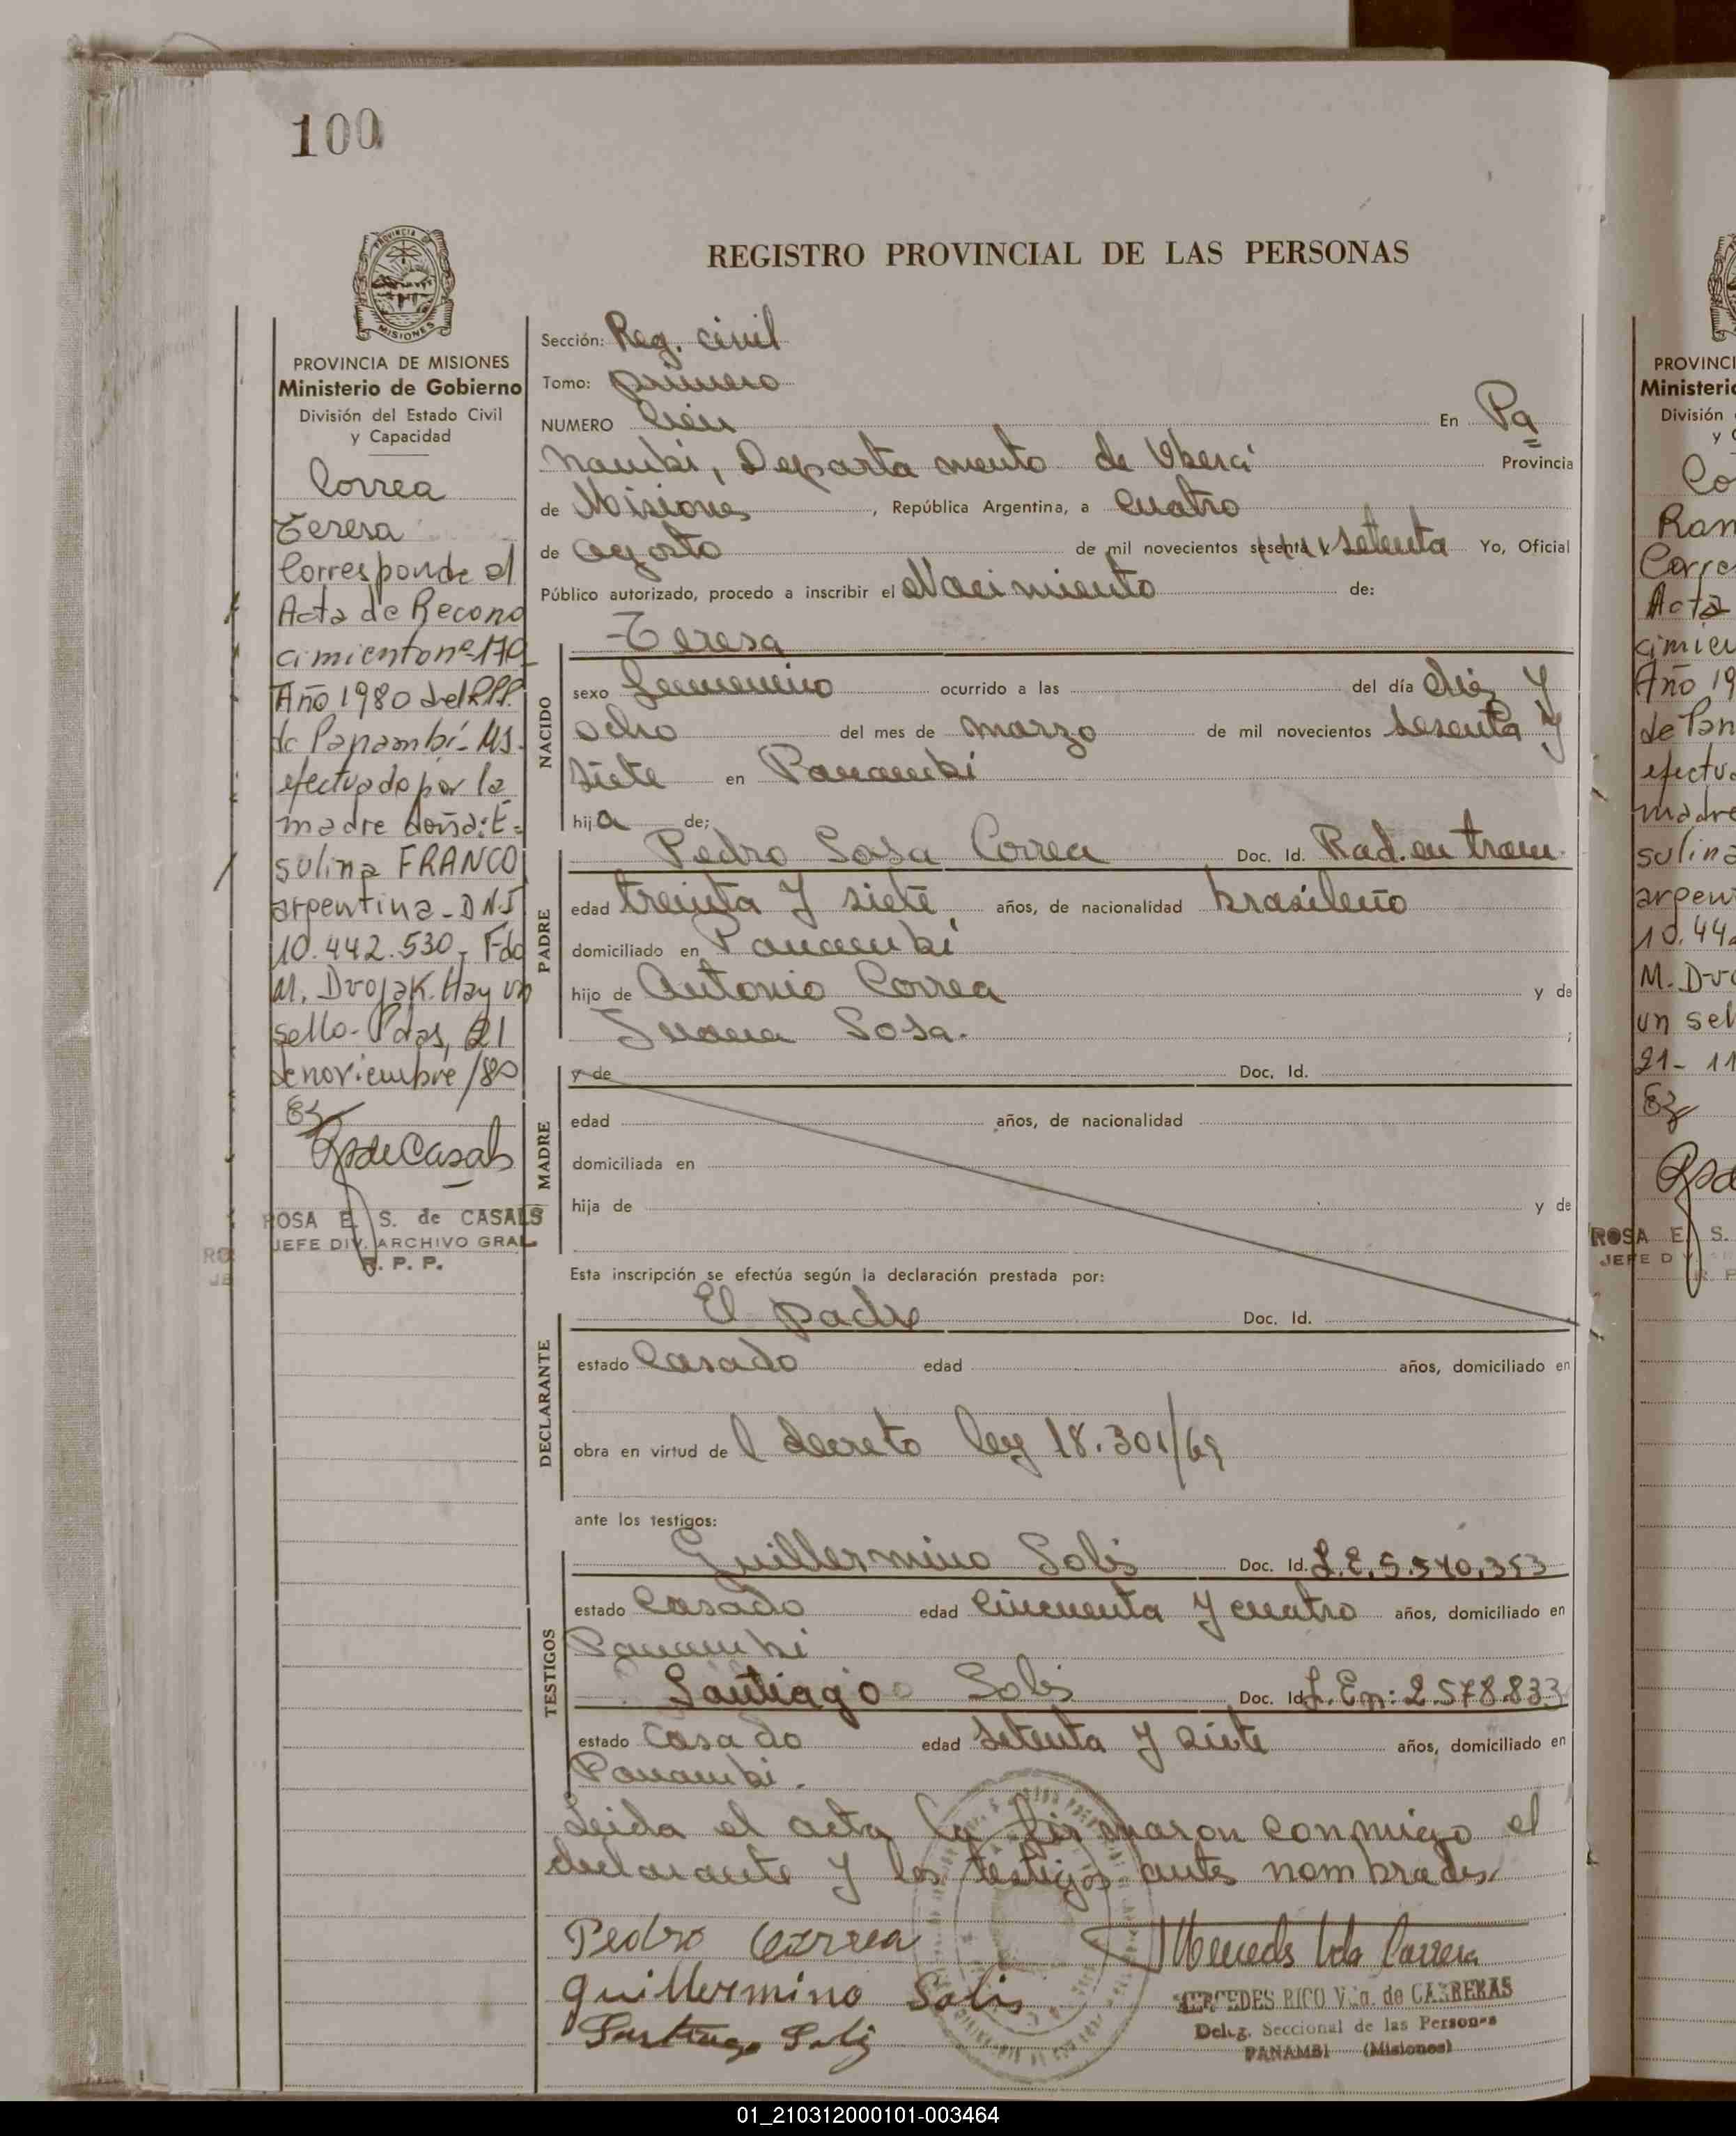 100
REGISTRO PROVINCIAL DE LAS PERSONAS
PROVINCIA DE MISIONES
Ministerio de Gobierno
División del Estado Civil
y Capacidad
Correa
Teresa
Corresponde al
Acta de Recono
cimiento nº 179
Año 1980 del RPP.
de Panambí - Ms.
efectuado por la
madre doña: E-
sulina FRANCO
argentina - DNI
10.442.530 - Fdo
M. Dvojak. Hay un
sello - Pdas, 21
de noviembre/80
RdeCasals
ROSA E. S. de CASALS
JEFE DIV. ARCHIVO GRAL
R. P. P.
Sección: Reg. civil
Tomo: primero
NUMERO Cien En Pa
nambi, Departamento de Oberá Provincia
de Misiones, República Argentina, a cuatro
de agosto de mil novecientos sesenta y setenta Yo, Oficial
Público autorizado, procedo a inscribir el Nacimiento de:
NACIDO
Teresa
sexo femenino ocurrido a las del día diez y
ocho del mes de marzo de mil novecientos sesenta y
siete en Panambí
hija de;
PADRE
Pedro Sosa Correa Doc. Id. Rad. en tram.
edad treinta y siete, años, de nacionalidad brasileño
domiciliado en Panambí
hijo de Antonio Correa y de
Juana Sosa. ;
MADRE
y de Doc. Id.
edad años, de nacionalidad
domiciliada en
hija de y de
Esta inscripción se efectúa según la declaración prestada por:
DECLARANTE
El padre Doc. Id.
estado Casado edad años, domiciliado en
obra en virtud de l decreto ley 18.301/69
ante los testigos:
TESTIGOS
Guillermino Solis Doc. Id. L.E. 5.540.353
estado Casado edad Cincuenta y cuatro años, domiciliado en
Panambi
Santiago Solis Doc. Id. L. En: 2.578.833
estado Casado edad setenta y siete años, domiciliado en
Panambi.
Leida el acta la firmaron conmigo el
declarante y los testigos antes nombrados
Pedro Correa
Guillermino Solis
Santiago Solis
MERCEDES RICO Vda. de CARRERAS
Deleg. Seccional de las Personas
PANAMBI (Misiones)
PROVINCI
Ministeri
División
Co
Ran
Corre
Acta
cimien
Año 19
de Pan
efectu
madre
sulina
argen
10.44
M. Dvo
un sel
21- 11
ROSA E. S.
JEFE D
01_210312000101-003464